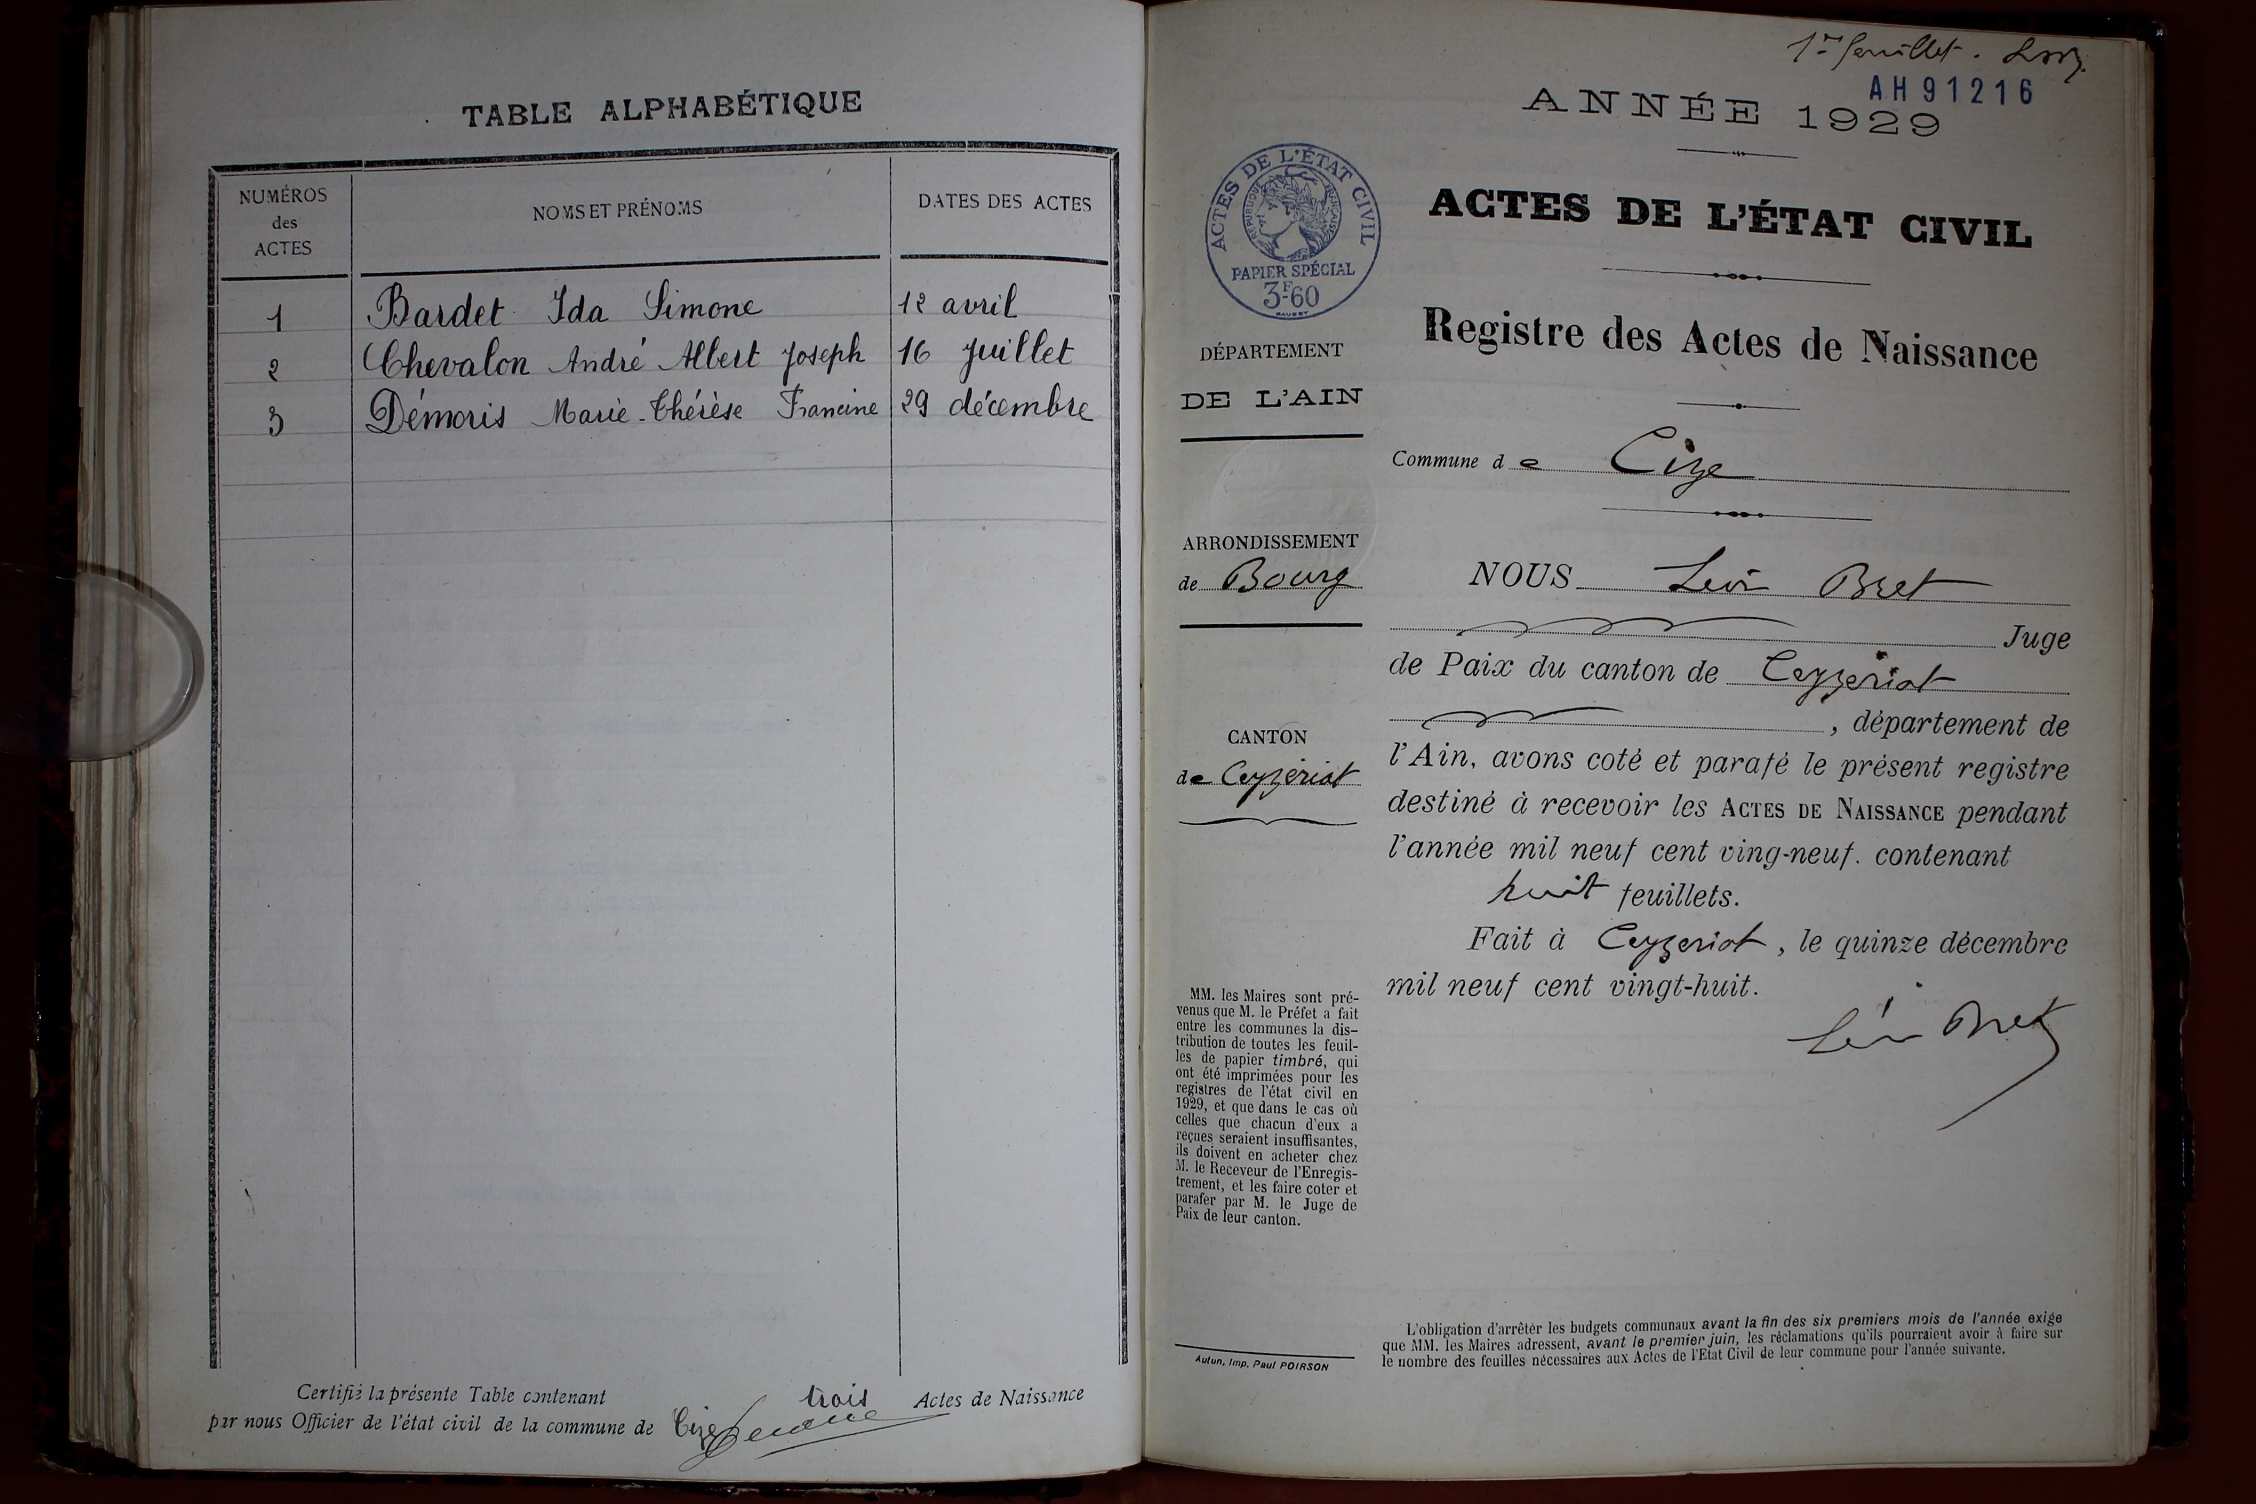 TABLE ALPHABÉTIQUE
NUMÉROS
des
ACTES
NOMS ET PRÉNOMS
DATES DES ACTES
1 Bardet Ida Simone 12 avril
2 Chevalon André Albert Joseph 16 Juillet
3 Démoris Marie-Thérèse Francine 29 décembre
Certifié la présente Table contenant trois Actes de Naissance
par nous Officier de l'état civil de la commune de Cize
1er feuillet.
AH91216
ANNÉE 1929
ACTES DE L'ÉTAT CIVIL
RÉPUBLIQUE FRANÇAISE
PAPIER SPÉCIAL
3F60
ACTES DE L'ÉTAT CIVIL
Registre des Actes de Naissance
DÉPARTEMENT
DE L'AIN
Commune de Cize
ARRONDISSEMENT
de Bourg
NOUS Léon Bret
Juge
de Paix du canton de Ceyzériat
, département de
CANTON
de Ceyzériat
l'Ain, avons coté et parafé le présent registre
destiné à recevoir les ACTES DE NAISSANCE pendant
l'année mil neuf cent ving-neuf. contenant
huit feuillets.
Fait à Ceyzeriat, le quinze décembre
mil neuf cent vingt-huit.
Léon Bret
MM. les Maires sont pré-
venus que M. le Préfet a fait
entre les communes la dis-
tribution de toutes les feuil-
les de papier timbré, qui
ont été imprimées pour les
registres de l'état civil en
1929, et que dans le cas où
celles que chacun d'eux a
reçues seraient insuffisantes,
ils doivent en acheter chez
M. le Receveur de l'Enregis-
trement, et les faire coter et
parafer par M. le Juge de
Paix de leur canton.
Autun, Imp. Paul POIRSON
L'obligation d'arrêter les budgets communaux avant la fin des six premiers mois de l'année exige
que MM. les Maires adressent, avant le premier juin, les réclamations qu'ils pourraient avoir à faire sur
le nombre des feuilles nécessaires aux Actes de l'Etat Civil de leur commune pour l'année suivante.